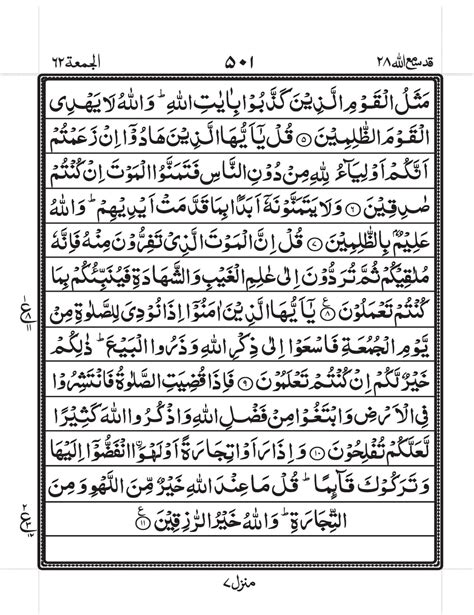 قد سمع الله ٢٨ ٥٠١ الجمعة ٦٢
مَثَلُ الْقَوْمِ الَّذِيْنَ كَذَّبُوْا بِاٰيٰتِ اللّٰهِ ؕ وَاللّٰهُ لَا يَهْدِى
الْقَوْمَ الظّٰلِمِيْنَ ۝٥ قُلْ يٰۤاَيُّهَا الَّذِيْنَ هَادُوْۤا اِنْ زَعَمْتُمْ
اَنَّكُمْ اَوْلِيَآءُ لِلّٰهِ مِنْ دُوْنِ النَّاسِ فَتَمَنَّوُا الْمَوْتَ اِنْ كُنْتُمْ
صٰدِقِيْنَ ۝٦ وَلَا يَتَمَنَّوْنَهٗۤ اَبَدًۢا بِمَا قَدَّمَتْ اَيْدِيْهِمْ ؕ وَاللّٰهُ
عَلِيْمٌۢ بِالظّٰلِمِيْنَ ۝٧ قُلْ اِنَّ الْمَوْتَ الَّذِىْ تَفِرُّوْنَ مِنْهُ فَاِنَّهٗ
مُلٰقِيْكُمْ ثُمَّ تُرَدُّوْنَ اِلٰى عٰلِمِ الْغَيْبِ وَالشَّهَادَةِ فَيُنَبِّئُكُمْ بِمَا
كُنْتُمْ تَعْمَلُوْنَ ۝٨ يٰۤاَيُّهَا الَّذِيْنَ اٰمَنُوْۤا اِذَا نُوْدِىَ لِلصَّلٰوةِ مِنْ
يَّوْمِ الْجُمُعَةِ فَاسْعَوْا اِلٰى ذِكْرِ اللّٰهِ وَذَرُوا الْبَيْعَ ؕ ذٰلِكُمْ
خَيْرٌ لَّكُمْ اِنْ كُنْتُمْ تَعْلَمُوْنَ ۝٩ فَاِذَا قُضِيَتِ الصَّلٰوةُ فَانْتَشِرُوْا
فِى الْاَرْضِ وَابْتَغُوْا مِنْ فَضْلِ اللّٰهِ وَاذْكُرُوا اللّٰهَ كَثِيْرًا
لَّعَلَّكُمْ تُفْلِحُوْنَ ۝١٠ وَاِذَا رَاَوْا تِجَارَةً اَوْ لَهْوَا ۨانْفَضُّوْۤا اِلَيْهَا
وَتَرَكُوْكَ قَآئِمًا ؕ قُلْ مَا عِنْدَ اللّٰهِ خَيْرٌ مِّنَ اللَّهْوِ وَمِنَ
التِّجَارَةِ ؕ وَاللّٰهُ خَيْرُ الرّٰزِقِيْنَ ۝١١
منزل ٧